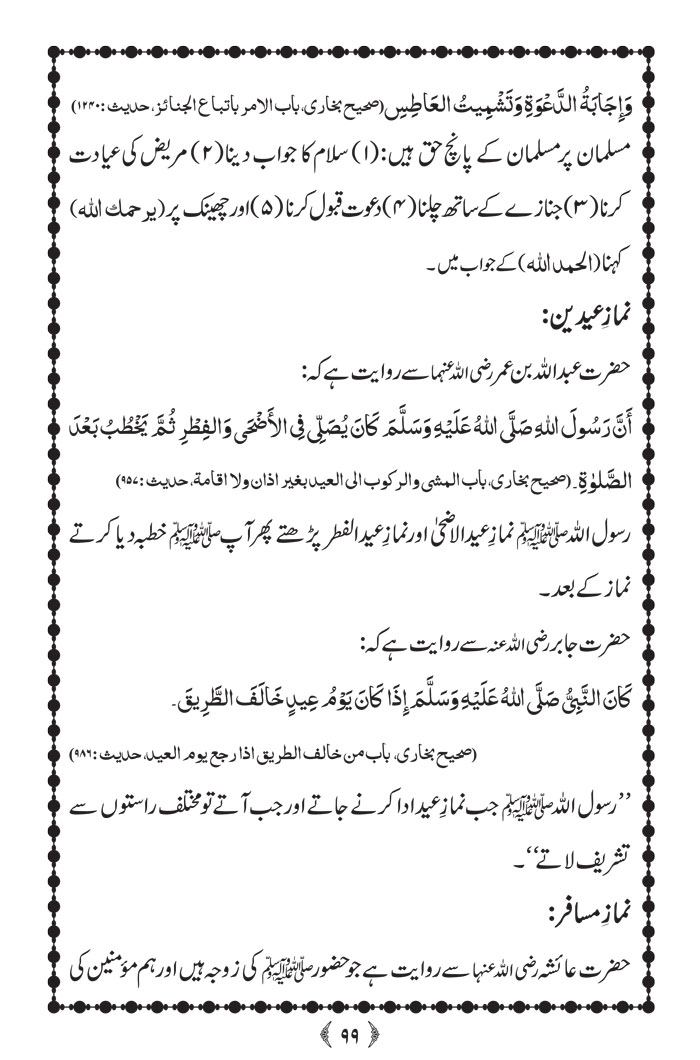 وَإِجَابَةُ الدَّعْوَةِ وَتَشْمِيتُ العَاطِسِ (صحیح بخاری، باب الامر باتباع الجنائز، حدیث: ۱۲۴۰)
مسلمان پر مسلمان کے پانچ حق ہیں: (۱) سلام کا جواب دینا (۲) مریض کی عیادت
کرنا (۳) جنازے کے ساتھ چلنا (۴) دعوت قبول کرنا (۵) اور چھینک پر (یرحمك الله)
کہنا (الحمد الله) کے جواب میں۔
نمازِ عیدین:
حضرت عبد اللہ بن عمر رضی اللہ عنہما سے روایت ہے کہ:
أَنَّ رَسُولَ اللهِ صَلَّى اللهُ عَلَيْهِ وَسَلَّمَ كَانَ يُصَلِّى فِى الأَضْحَى وَالفِطْرِ ثُمَّ يَخْطُبُ بَعْدَ
الصَّلٰوةِ۔ (صحیح بخاری، باب المشی والرکوب الی العید بغیر اذان ولا اقامة، حدیث: ۹۵۷)
رسول اللہ ﷺ نمازِ عید الاضحیٰ اور نمازِ عید الفطر پڑھتے پھر آپ ﷺ خطبہ دیا کرتے
نماز کے بعد۔
حضرت جابر رضی اللہ عنہ سے روایت ہے کہ:
كَانَ النَّبِيُّ صَلَّى اللهُ عَلَيْهِ وَسَلَّمَ إِذَا كَانَ يَوْمُ عِيدٍ خَالَفَ الطَّرِيقَ۔
(صحیح بخاری، باب من خالف الطریق اذا رجع یوم العید، حدیث: ۹۸۶)
’’رسول اللہ ﷺ جب نمازِ عید ادا کرنے جاتے اور جب آتے تو مختلف راستوں سے
تشریف لاتے‘‘۔
نمازِ مسافر:
حضرت عائشہ رضی اللہ عنہا سے روایت ہے جو حضور ﷺ کی زوجہ ہیں اور ہم مؤمنین کی
﴿ ۹۹ ﴾